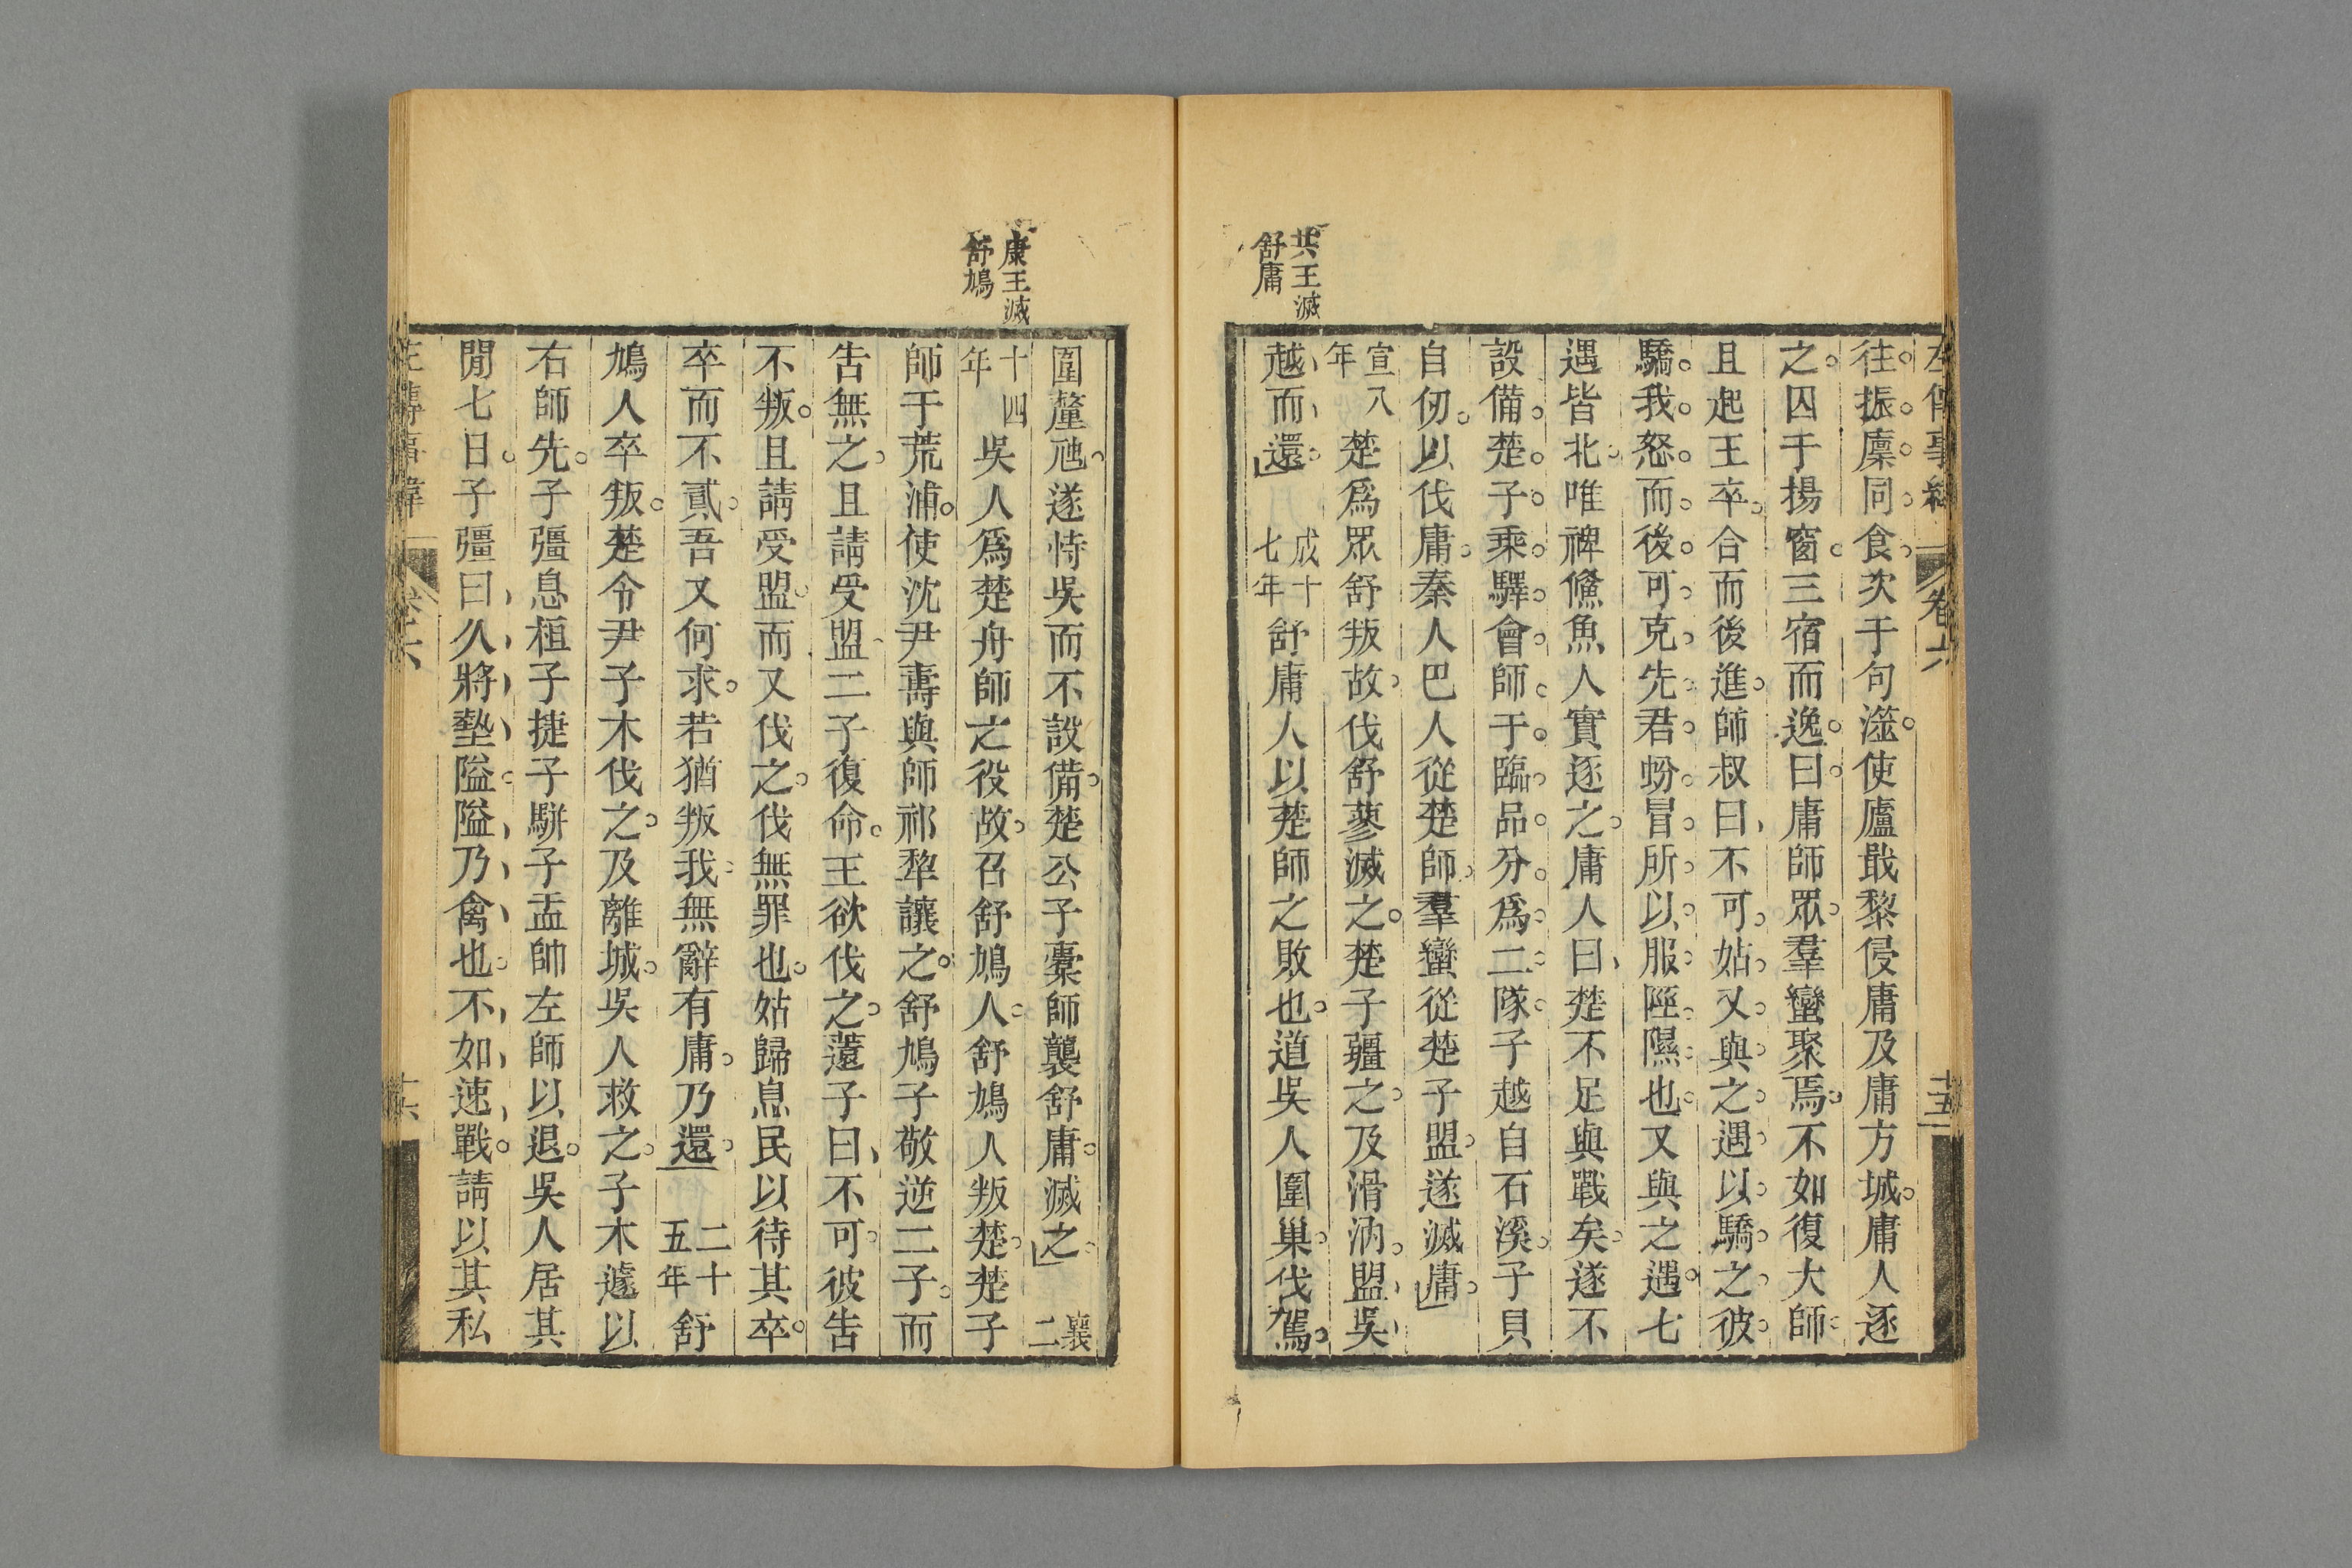 往振廩同食次于句澨使廬戢黎侵庸及庸方城庸人逐
之囚子揚窗三宿而逸曰庸師眾羣蠻聚焉不如復大師
且起王卒合而後進師叔曰不可姑又與之遇以驕之彼
驕我怒而後可克先君蚡冒所以服陘隰也又與之遇七
遇皆北唯裨鯈魚人實逐之庸人曰楚不足與戰矣遂不
設備楚子乘驛會師于臨品分為二隊子越自石溪子貝
自仞以伐庸秦人巴人從楚師羣蠻從楚子盟遂滅庸
宣八年 楚爲眾舒叛故伐舒蓼滅之楚子疆之及滑汭盟吳
共王滅舒庸
越而還 成十七年 舒庸人以楚師之敗也道吳人圍巢伐駕
圍釐虺遂恃吳而不設備楚公子橐師襲舒庸滅之 襄二
康王滅舒鳩
十四年 吳人爲楚舟師之役故召舒鳩人舒鳩人叛楚楚子
師于荒浦使沈尹壽與師祁犂讓之舒鳩子敬逆二子而
告無之且請受盟二子復命王欲伐之薳子曰不可彼告
不叛且請受盟而又伐之伐無罪也姑歸息民以待其卒
卒而不貳吾又何求若猶叛我無辭有庸乃還 二十五年 舒
鳩人卒叛楚令尹子木伐之及離城吳人救之子木遽以
右師先子彊息桓子捷子駢子盂帥左師以退吳人居其
閒七日子彊曰久將墊隘隘乃禽也不如速戰請以其私
卷六
十五